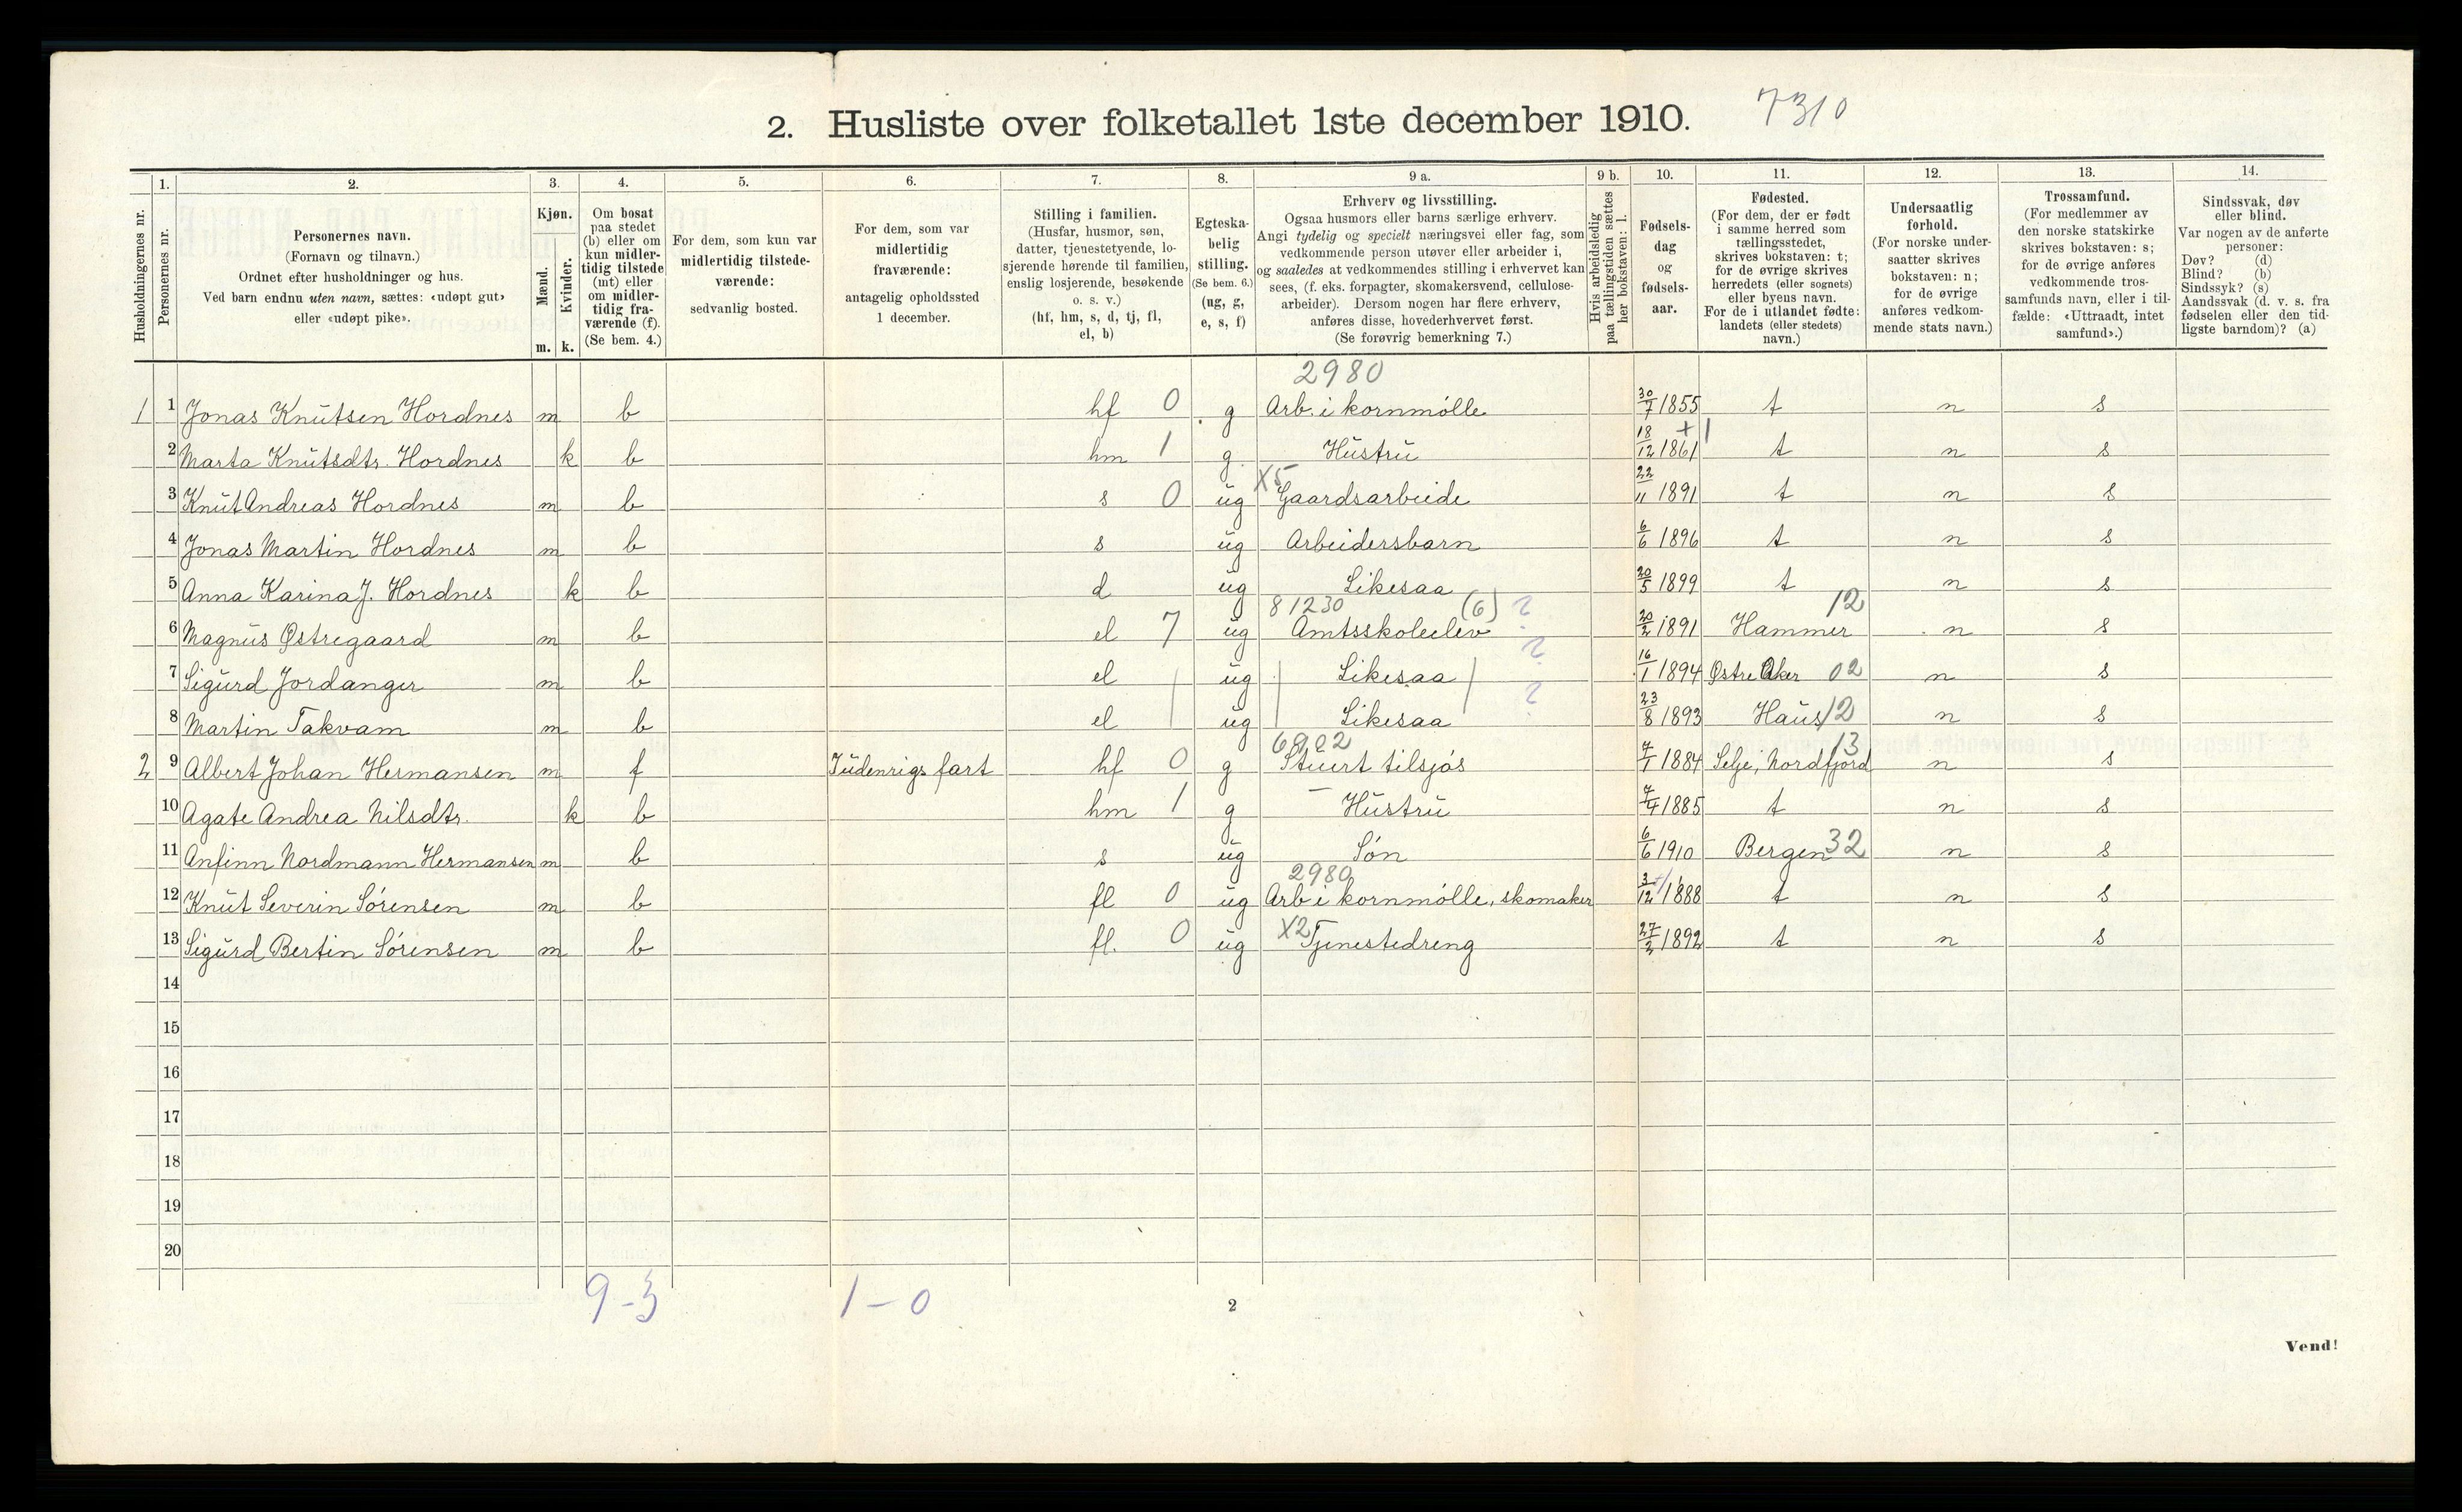 2. Husliste over folketallet 1ste december 1910. 7310
Husholdningernes nr.
1. Personernes nr.
2. Personernes navn.
(Fornavn og tilnavn.)
Ordnet efter husholdninger og hus.
Ved barn endnu uten navn, sættes: «udøpt gut»
eller «udøpt pike».
3. Kjøn.
Mænd. Kvinder.
m. k.
4. Om bosat
paa stedet
(b) eller om
kun midler-
tidig tilstede
(mt) eller
om midler-
tidig fra-
værende (f).
(Se bem. 4.)
5. For dem, som kun var
midlertidig tilstede-
værende:
sedvanlig bosted.
6. For dem, som var
midlertidig
fraværende:
antagelig opholdssted
1 december.
7. Stilling i familien.
(Husfar, husmor, søn,
datter, tjenestetyende, lo-
sjerende hørende til familien,
enslig losjerende, besøkende
o. s. v.)
(hf, hm, s, d, tj, fl,
el, b)
8. Egteska-
belig
stilling.
(Se bem. 6.)
(ug, g,
e, s, f)
9 a. Erhverv og livsstilling.
Ogsaa husmors eller barns særlige erhverv.
Angi tydelig og specielt næringsvei eller fag, som
vedkommende person utøver eller arbeider i,
og saaledes at vedkommendes stilling i erhvervet kan
sees, (f. eks. forpagter, skomakersvend, cellulose-
arbeider). Dersom nogen har flere erhverv,
anføres disse, hovederhvervet først.
(Se forøvrig bemerkning 7.)
9 b. Hvis arbeidsledig
paa tællingstiden sættes
her bokstaven: l.
10. Fødsels-
dag
og
fødsels-
aar.
11. Fødested.
(For dem, der er født
i samme herred som
tællingsstedet,
skrives bokstaven: t;
for de øvrige skrives
herredets (eller sognets)
eller byens navn.
For de i utlandet fødte:
landets (eller stedets)
navn.)
12. Undersaatlig
forhold.
(For norske under-
saatter skrives
bokstaven: n;
for de øvrige
anføres vedkom-
mende stats navn.)
13. Trossamfund.
(For medlemmer av
den norske statskirke
skrives bokstaven: s;
for de øvrige anføres
vedkommende tros-
samfunds navn, eller i til-
fælde: «Uttraadt, intet
samfund».)
14. Sindssvak, døv
eller blind.
Var nogen av de anførte
personer:
Døv? (d)
Blind? (b)
Sindssyk? (s)
Aandssvak (d. v. s. fra
fødselen eller den tid-
ligste barndom)? (a)
2980
1 1 Jonas Knutsen Hordnes m b hf 0 g Arb. i kornmölle 30/7 1855 t n s
2 Marta Knutsdtr. Hordnes k b hm 1 g Hustru 18/12 1861 +1 t n s
3 Knut Andreas Hordnes m b s 0 ug X5 Gaardsarbeide 22/11 1891 t n s
4 Jonas Martin Hordnes m b s ug Arbeidersbarn 6/6 1896 t n s
5 Anna Karina J. Hordnes k b d ug Likesaa 20/5 1899 t n s
81230 (6) ? 12
6 Magnus Østregaard m b el 7 ug Amtsskoleelev 20/2 1891 Hammer n s
7 Sigurd Jordanger m b el ug Likesaa ? 16/1 1894 Østre Aker 02 n s
8 Martin Takvam m b el ug Likesaa ? 23/8 1893 Haus 12 n s
6902 13
2 9 Albert Johan Hermansen m f Iudenrigs fart hf 0 g Stuert tilsjös 7/1 1884 Selje, Nordfjord n s
10 Agate Andrea Nilsdtr. k b hm 1 g Hustru 7/4 1885 t n s
11 Anfinn Nordmann Hermansen m b s ug Sön 6/6 1910 Bergen 32 n s
2980
12 Knut Severin Sörensen m b fl 0 ug Arb i kornmölle, skomaker 3/12 1888 t n s
13 Sigurd Bertin Sörensen m b fl. 0 ug X2 Tjenestedreng 27/2 1892 t n s
14
15
16
17
18
19
20
9-3 1-0 2
Vend!